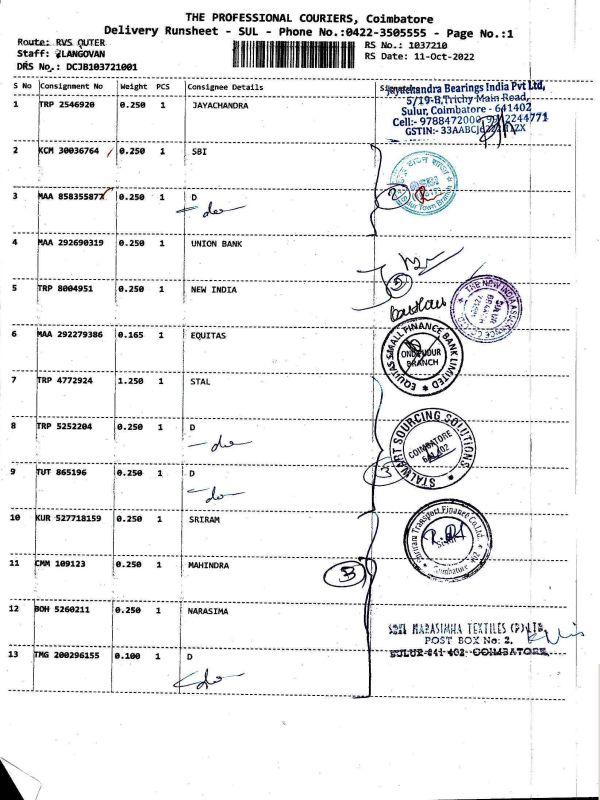 THE PROFESSIONAL COURIERS, Coimbatore
Delivery Runsheet - SUL - Phone No.:0422-3505555 - Page No.:1
Route: RVS OUTER
RS No.: 1037210
Staff: ILANGOVAN
RS Date: 11-Oct-2022
DRS No.: DCJB103721001
S No Consignment No Weight PCS Consignee Details
1 TRP 2546920 0.250 1 JAYACHANDRA
Jayachandra Bearings India Pvt Ltd,
5/19-B,Trichy Main Road,
Sulur, Coimbatore - 641402
Cell:- 9788472000,
GSTIN:-
2 KCM 30036764 0.250 1 SBI
SBI
Sulur Town Branch
3 MAA 858355877 0.250 1 D
-do-
2
4 MAA 292690319 0.250 1 UNION BANK
5 TRP 8004951 0.250 1 NEW INDIA
THE NEW INDIA ASSURANCE CO. LTD.
SULUR
6 MAA 292279386 0.165 1 EQUITAS
EQUITAS SMALL FINANCE BANK LIMITED
BRANCH
7 TRP 4772924 1.250 1 STAL
STALWART SOURCING SOLUTIONS
COIMBATORE
641 402
8 TRP 5252204 0.250 1 D
-do-
9 TUT 865196 0.250 1 D
-do-
3
10 KUR 527718159 0.250 1 SRIRAM
Shriram Transport Finance Co.Ltd.
Sulur
Coimbatore
11 CMM 109123 0.250 1 MAHINDRA
12 BOH 5260211 0.250 1 NARASIMA
SHRI NARASIMHA TEXTILES (P) LTD,
POST BOX No: 2,
SULUR-641 402, COIMBATORE.
13 TMG 200296155 0.100 1 D
-do-